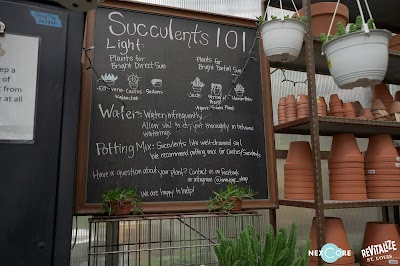 Succulents 101
Light:
Plants for
Bright Direct Sun
Plants for
Bright Partial Sun
Cactus Sedums
Kalanchoe
Haworthia
Water: Water infrequently
Allow soil to dry out thoroughly in between
waterings
Potting Mix: Succulents like well-drained soil
We recommend potting mix for Cactus/Succulents
Have a question about your plant? Contact us on Facebook
or instagram
We are happy to help!
at all
NEXCORE
REVITALIZE
ST. LOUIS